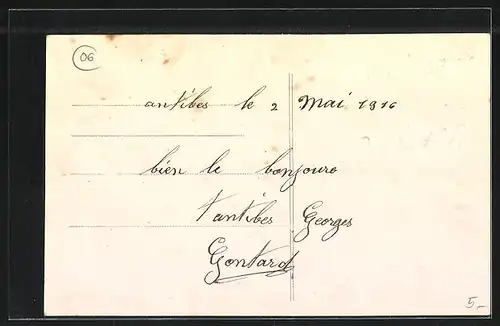 06
antibes le 2 Mai 1916
bien le bonjours
t'antibes Georges
Gontard
5.-